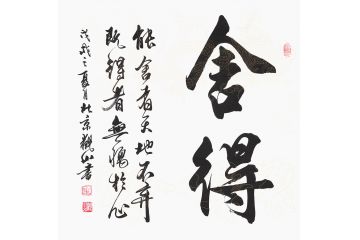 舍得
能舍者天地不弃
既得者無愧於心
戊戌之夏月北京觀山書